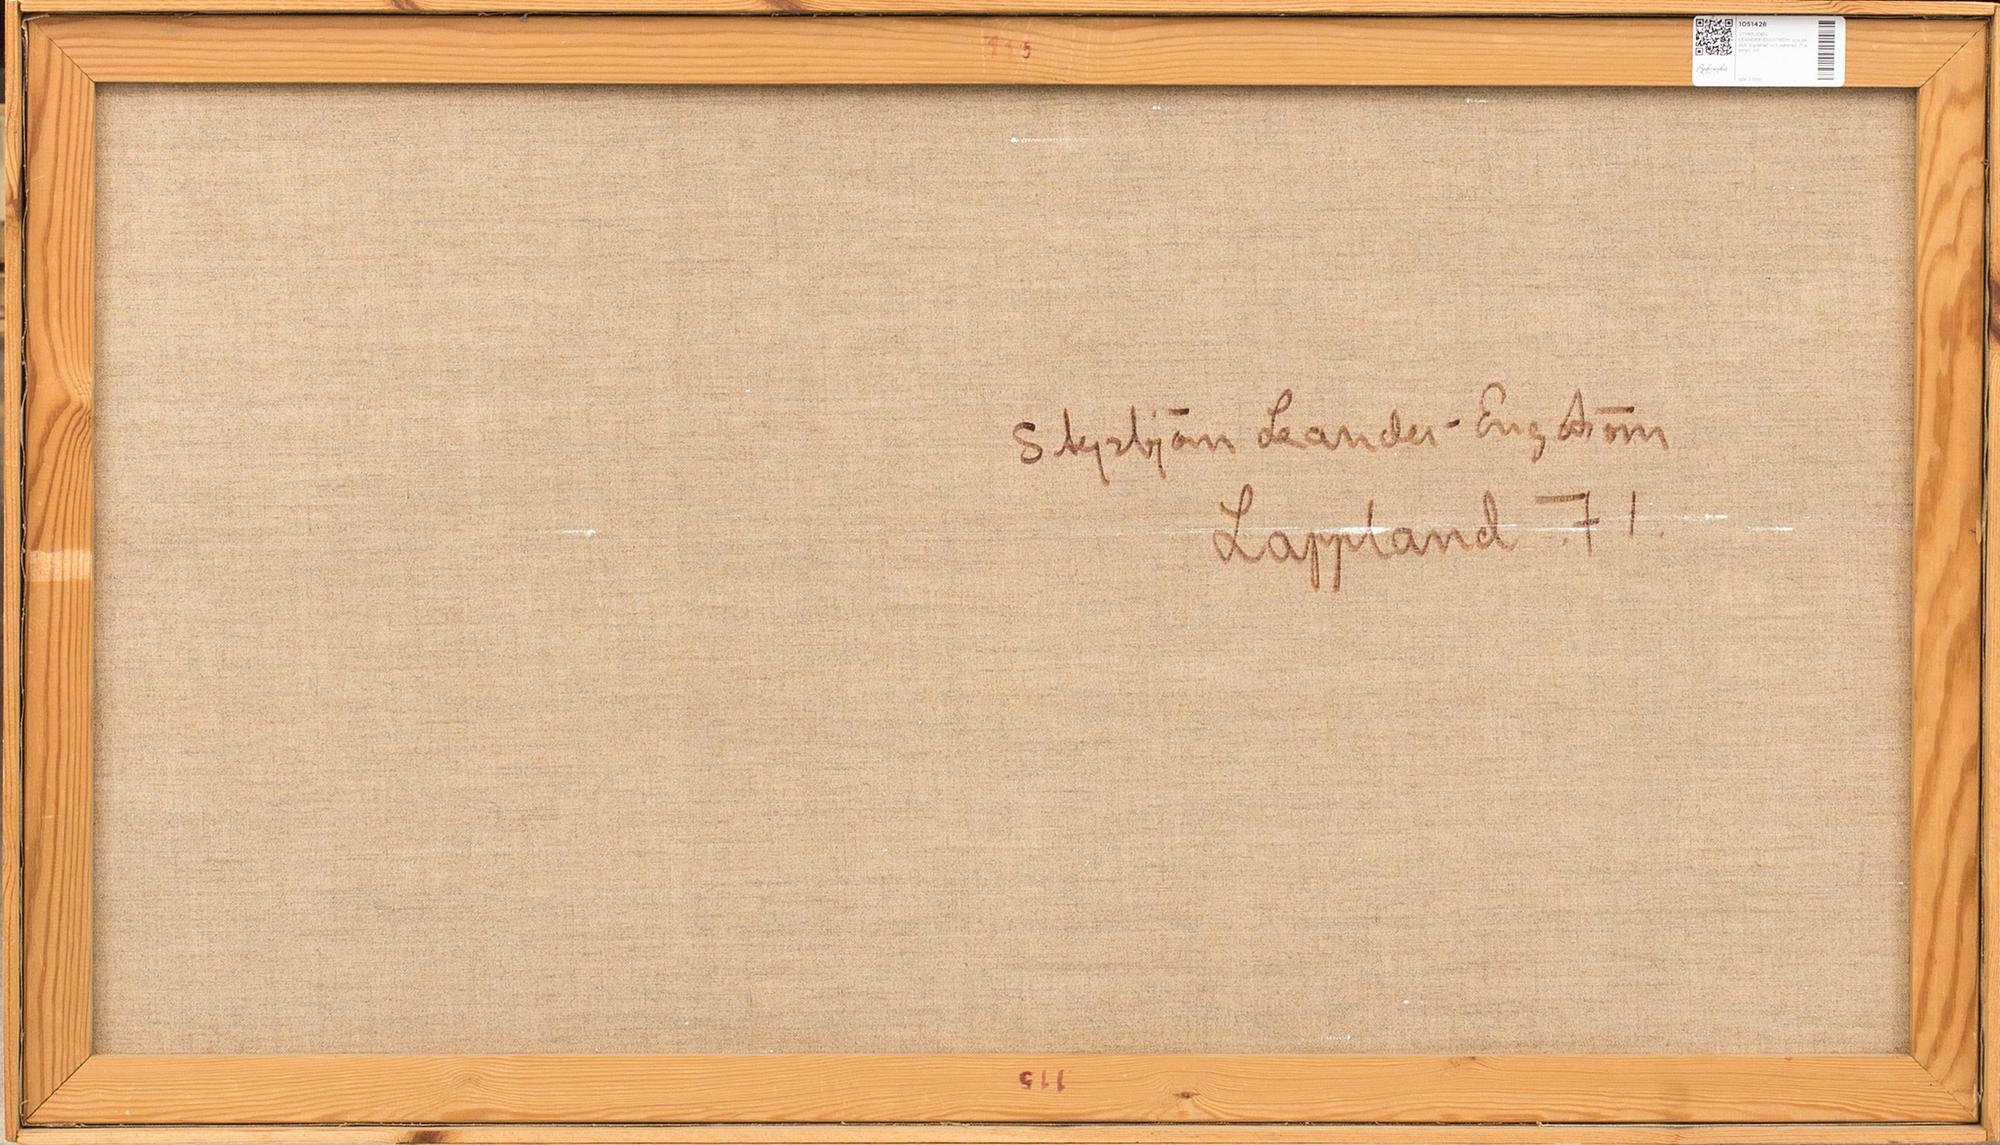 115
1051428
STYRBJÖRN
LEANDER-ENGSTRÖM
Styrbjörn Leander-Engström
Lappland .71.
115